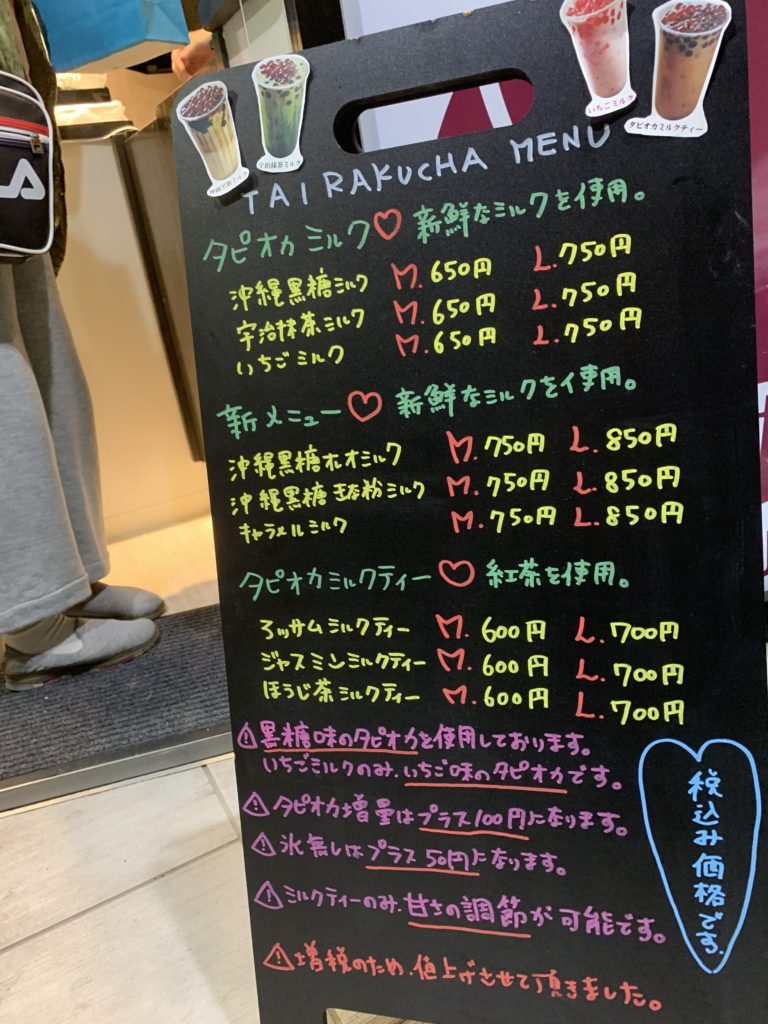 いちごミルク
タピオカミルクティー
宇治抹茶ミルク
沖縄黒糖ミルク
TAIRAKUCHA MENU
タピオカミルク♡ 新鮮なミルクを使用。
沖縄黒糖ミルク M.650円 L.750円
宇治抹茶ミルク M.650円 L.750円
いちごミルク M.650円 L.750円
新メニュー♡ 新鮮なミルクを使用。
沖縄黒糖オミルク M.750円 L.850円
沖縄黒糖粉ミルク M.750円 L.850円
キャラメルミルク M.750円 L.850円
タピオカミルクティー♡ 紅茶を使用。
アッサムミルクティー M.600円 L.700円
ジャスミンミルクティー M.600円 L.700円
ほうじ茶ミルクティー M.600円 L.700円
⚠黒糖味のタピオカを使用しております。
いちごミルクのみ、いちご味のタピオカです。
⚠タピオカ増量はプラス100円になります。
⚠氷無しはプラス50円になります。
⚠ミルクティーのみ、甘さの調節が可能です。
⚠増税のため、値上げさせて頂きました。
税込み価格です。